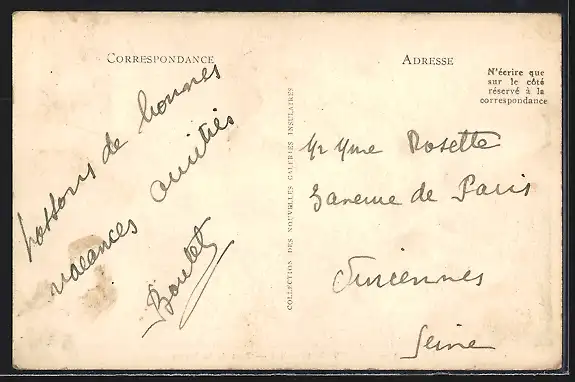 CORRESPONDANCE
passons de bonnes
vacances amitiés
Boutet
COLLECTION DES NOUVELLES GALERIES INSULAIRES
ADRESSE
N'écrire que
sur le côté
réservé à la
correspondance
Mr Mme Rosette
3 avenue de Paris
Vincennes
Seine